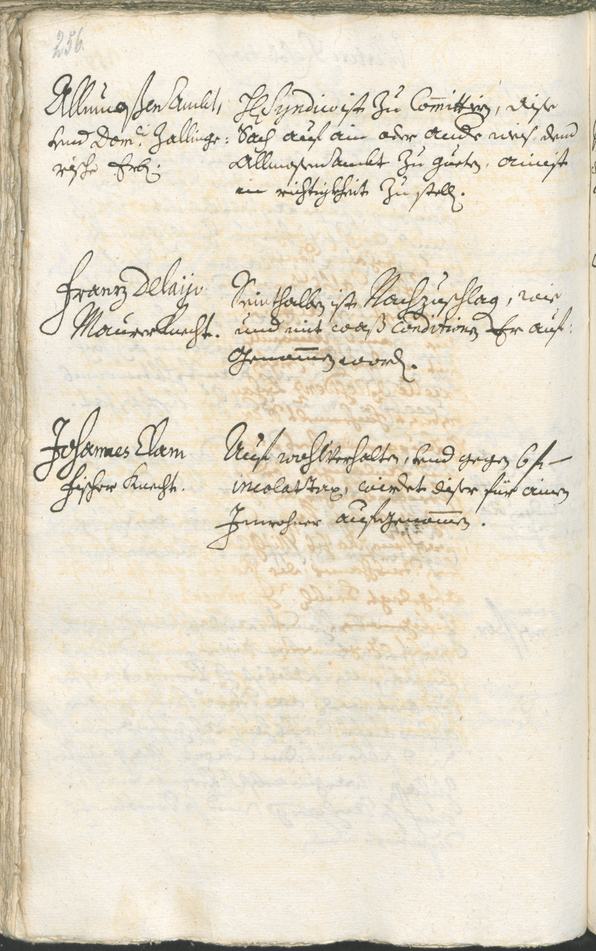 256
Allmuesen Ambt,
vnd Dom: Zallinge:
rische Erb:
H: Syndico ist Zu Com̄ittirn, dise
Sach auf ain oder andre weis dem
Allmosen Ambt Zu guetn, ainist
in richtigkheit Zu stelln.
Franz Delaijo
Maurer Knecht.
Seinthalbn ist Nachzuschlag, wie
und mit waß Conditionen Er auf:
genom̄en wordn.
Johannes Clam
fischer Knecht.
Auf wohlverhalten, vnd gegen 6 f
incolat tax, wirdet diser für ainen
Inwohner aufgenom̄en.